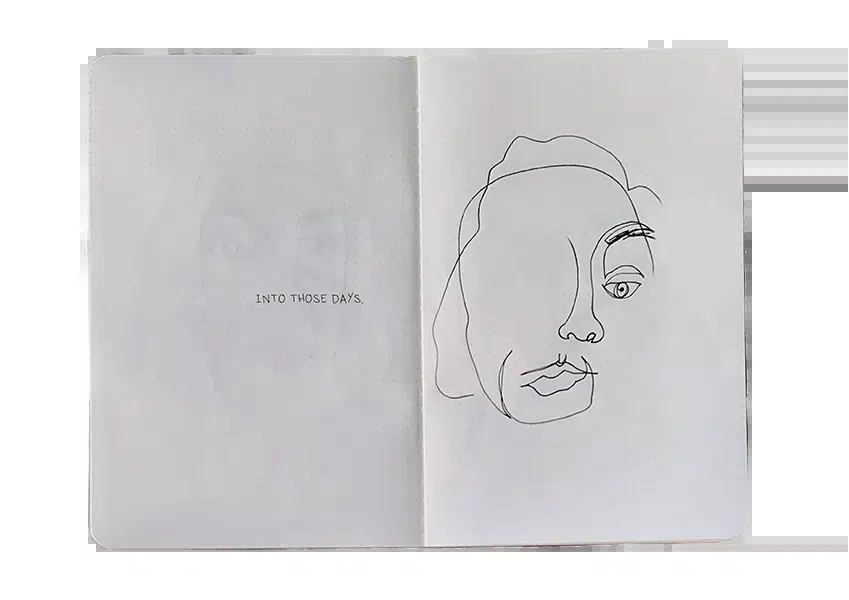 INTO THOSE DAYS.